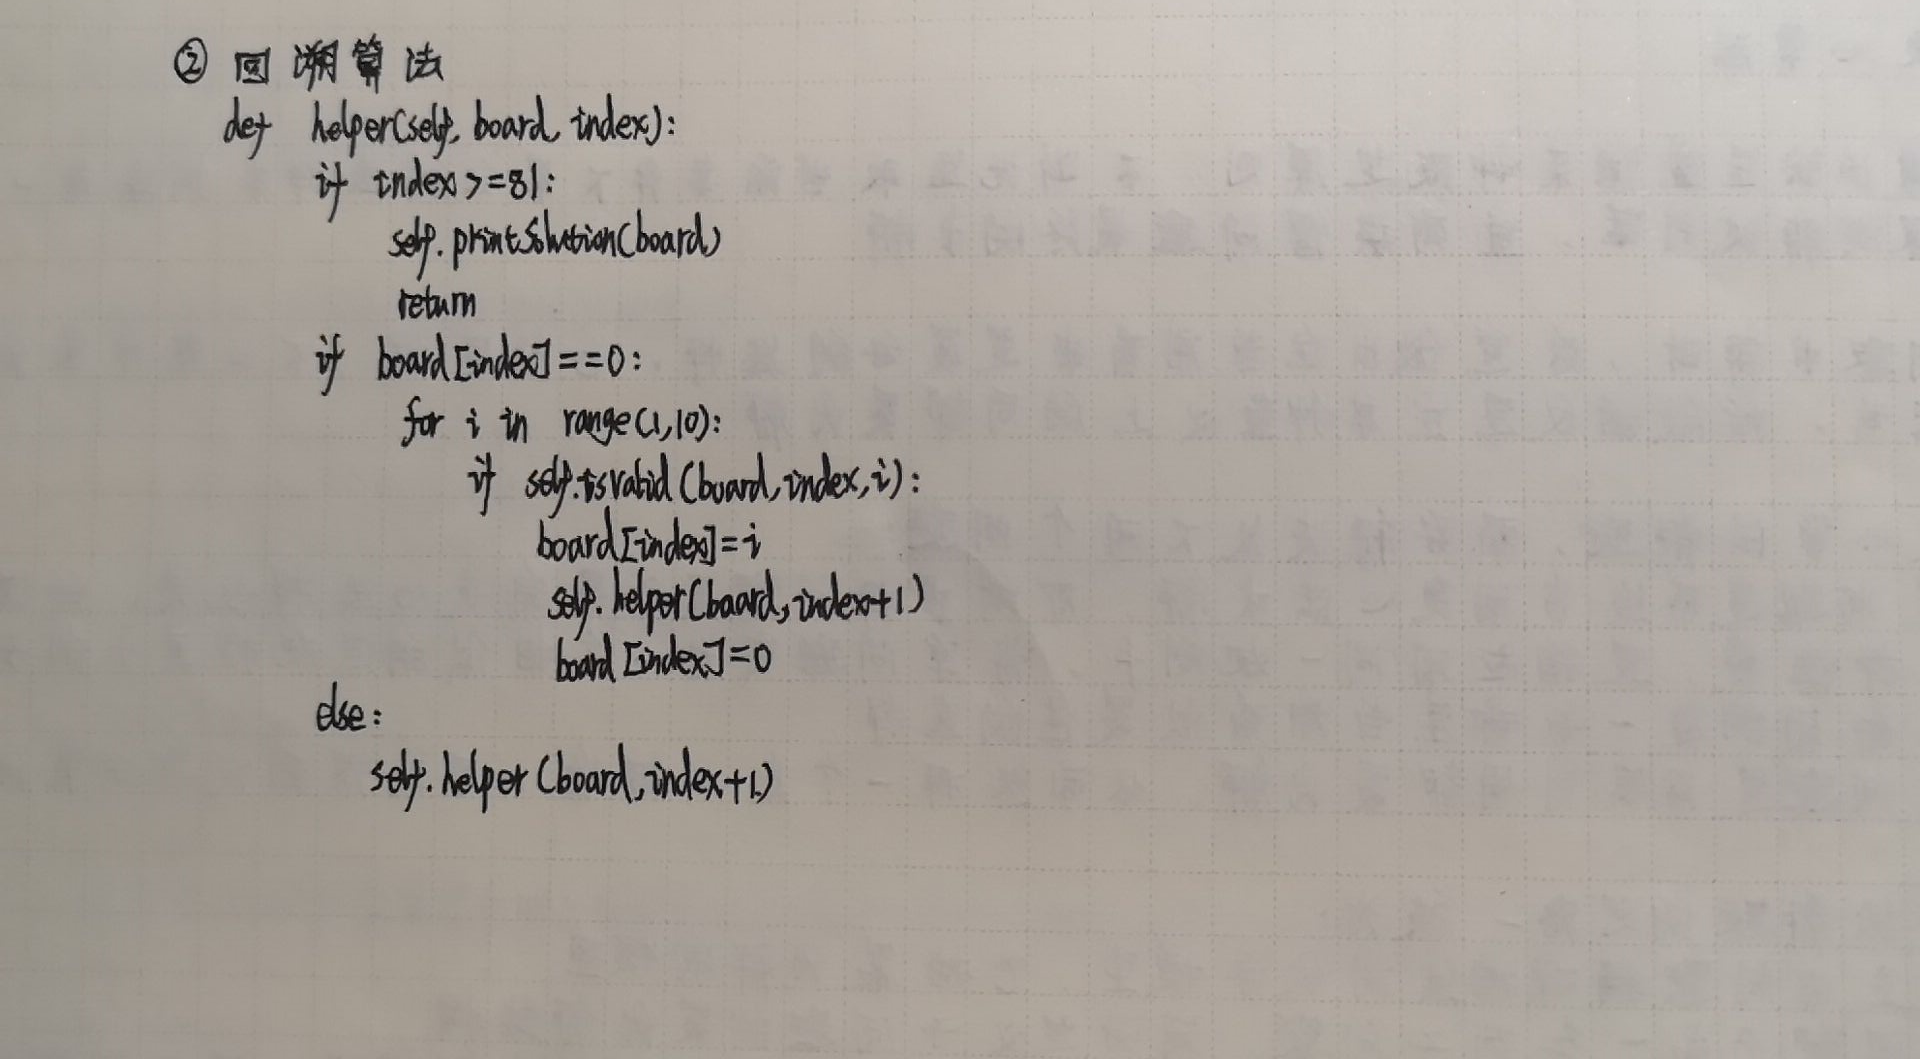 ② 回溯算法
def helper(self, board, index):
if index >=81:
self.printSolution(board)
return
if board[index]==0:
for i in range(1,10):
if self.isvalid(board,index,i):
board[index]=i
self.helper(board,index+1)
board[index]=0
else:
self.helper(board,index+1)